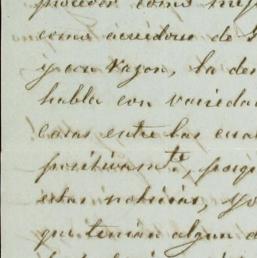 proceder como mej
como acudoso de G
y con razon, la den
habla con variedad
casas entre las cual
positivamte, porqu
estas noticias, yo
que tenian algun d